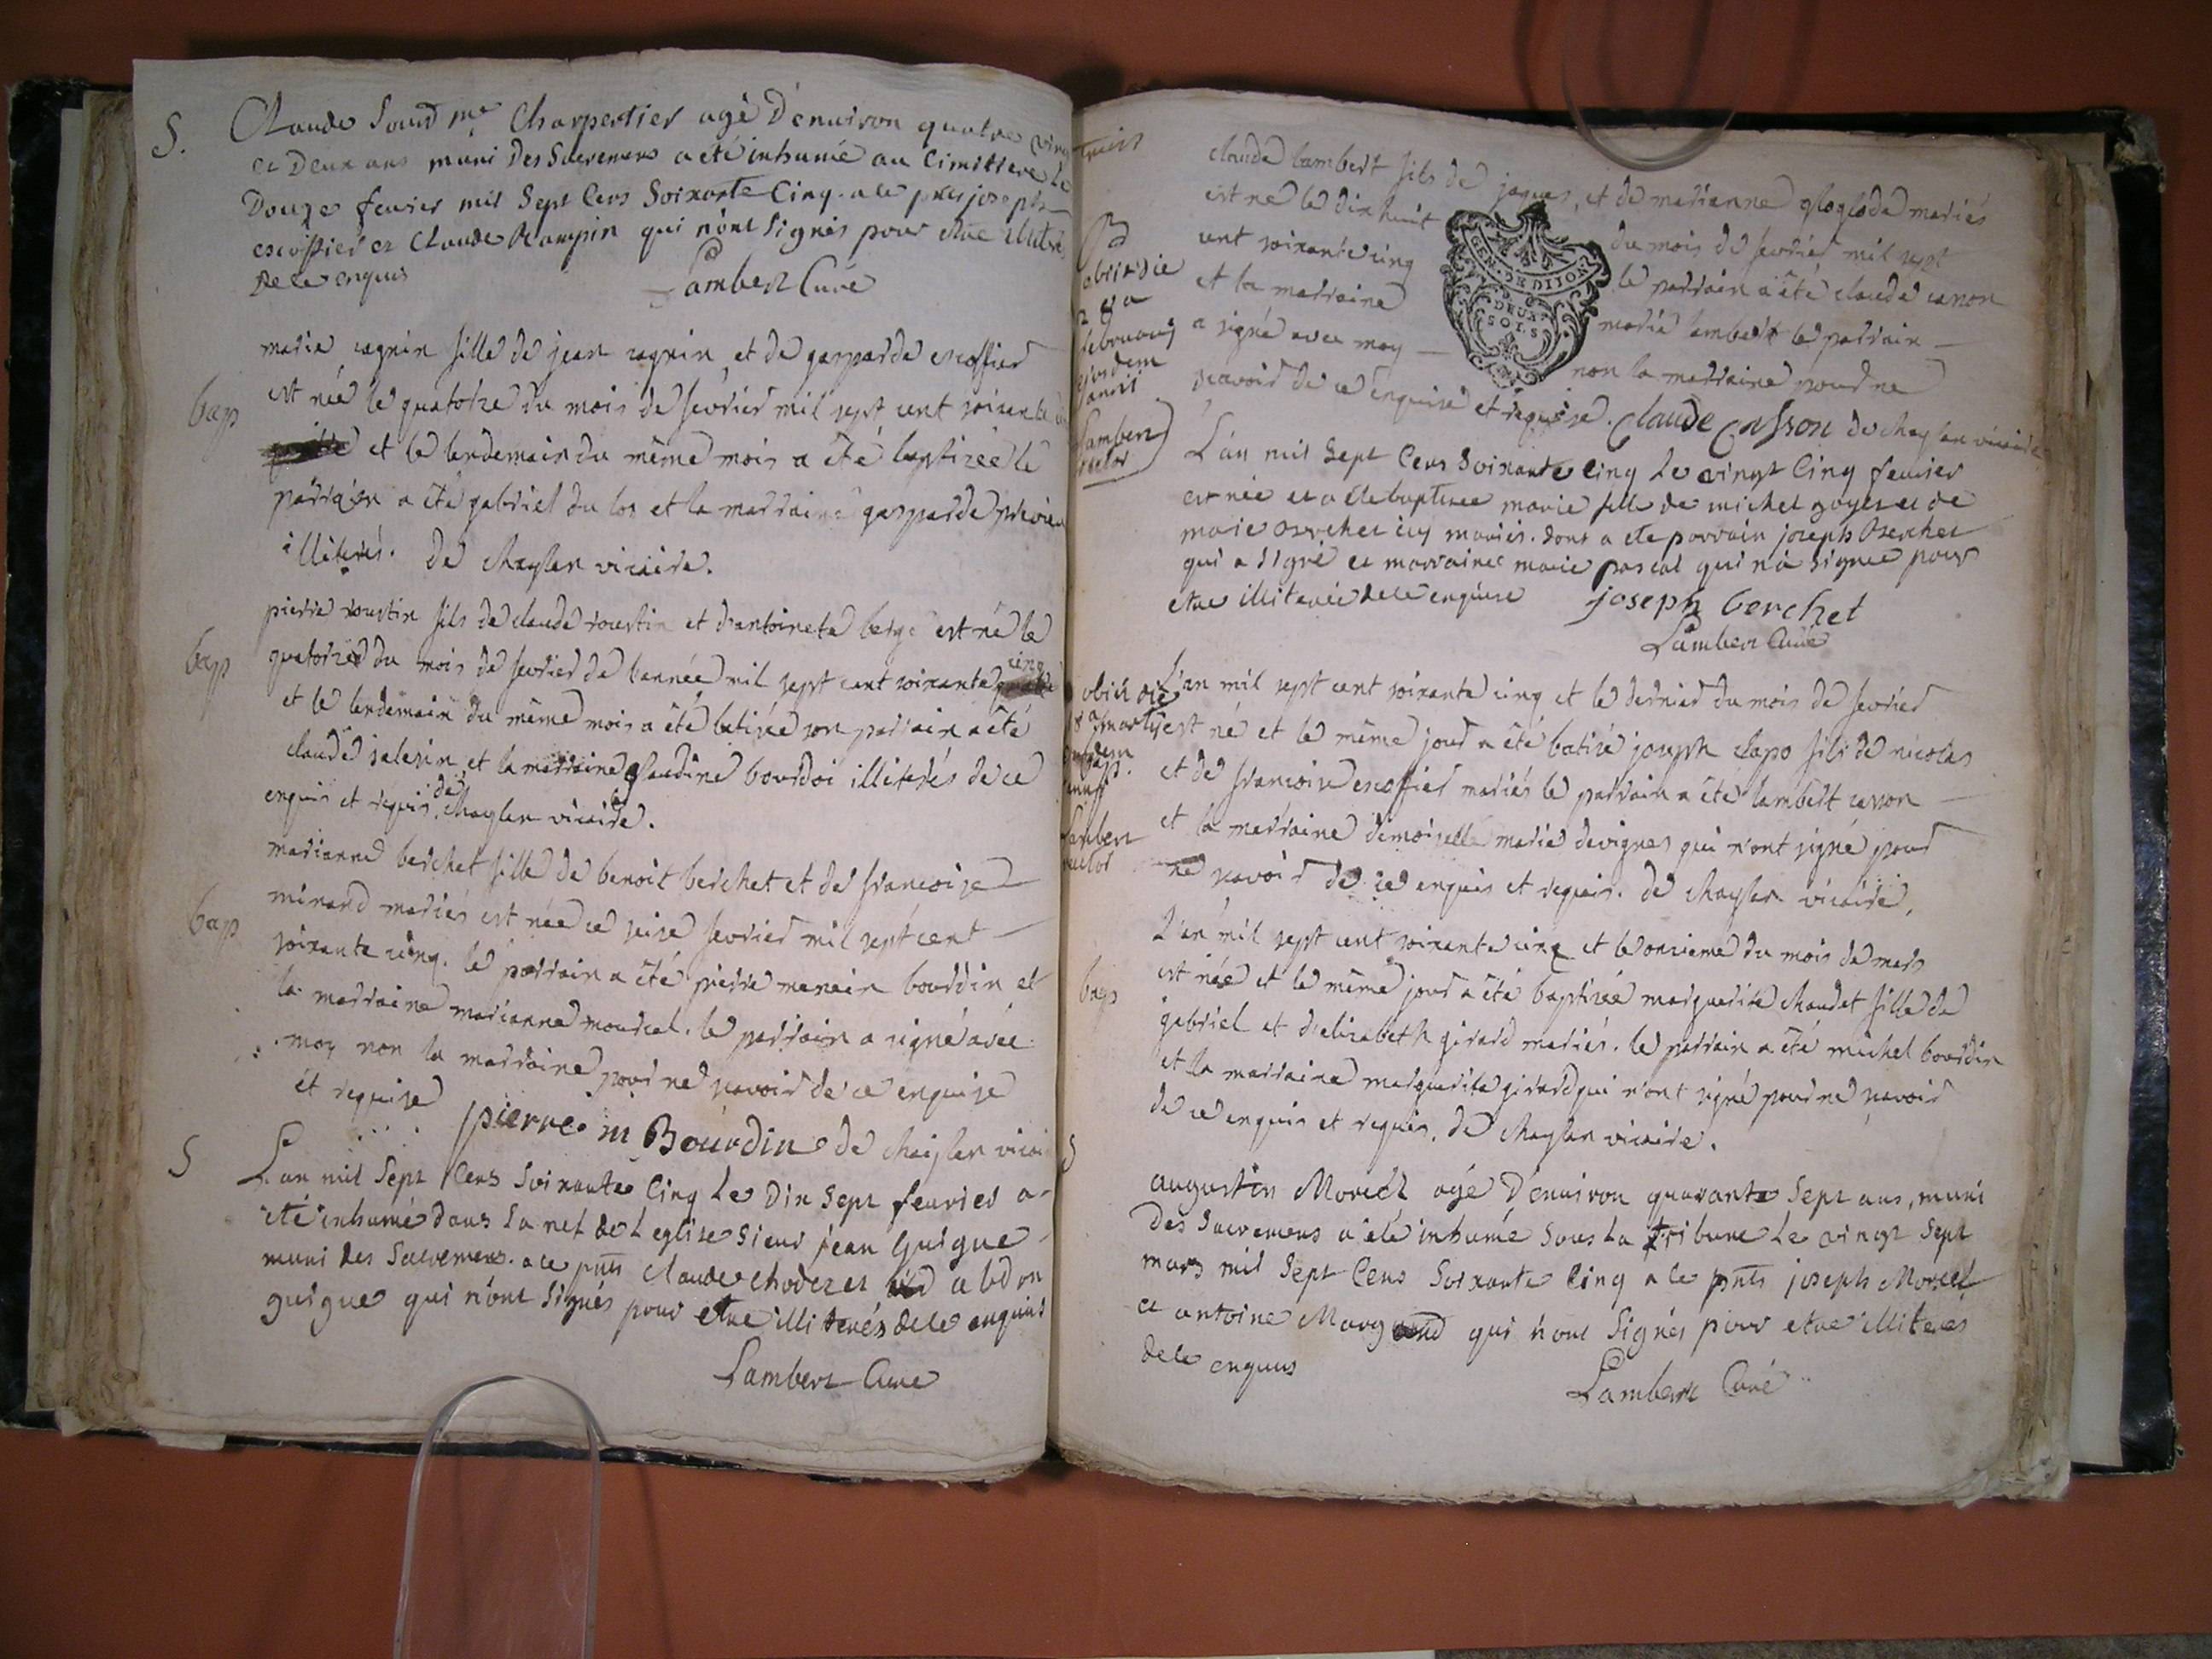 S. Claude Sourd me Charpentier agé D'enuiron quatre ving
et Deux ans muni Des Sacremens a été inhumé au Cimittiere Le
Douze feurier mil Sept Cens Soixante Cinq. a ce pres joseph
escoffier et Claude Rampin qui n'ont Signés pour être illiterés
De ce enquis
Lambert Curé
marie cagnin fille de jean cagnin et de gasparde escoffier
bap est née le quatorze du mois de fevrier mil sept cent soixante
et le lendemain du même mois a été baptizée le
parrain a été gabriel du los et la marraine gasparde
illiterés. de chaylan vicaire.
pierre roustin fils de claude roustin et d'antoinete berge est né le
bap quatorze du mois de fevrier de l'année mil sept cent soixante cinq
et le lendemain du même mois a été batizé son parrain a été
claude salesin et la marraine claudine bourdoi illiterés de ce
enquis et requis. de chaylan vicaire.
marianne berchet fille de benoit berchet et de francoize
bap minand mariés est née ce seize fevrier mil sept cent
soixante cinq. le parrain a été pierre menein bourdin et
la marraine marianne mourcel. le parrain a signé avec
moy non la marraine pour ne scavoir de ce enquize
et requize pierre m Bourdin de chaylan vicai
S L'an mil Sept Cens Soixante Cinq Le Dix Sept feurier a
été inhumé dans La nef de L'eglise Sieur jean Guigue
muni des Sacremens. a ce pnts Claude choderet et abdon
guigue qui n'ont Signés pour etre illiterés de ce enquis
Lambert Curé
claude lambert fils de jaques, et de marianne gloglode mariés
est ne le dix huit du mois de fevrier mil sept
cent soixante cinq le parrain a été claude casson
et la marraine marie lambert le parrain
a signé avec moy non la marraine pour ne
scavoir de ce enquize et requize. Claude Casson de chaylan vicaire
GEN. DE DIJON
DEUX
SOLS
obiit die
februarij
ejusdem
anni
Lambert
rector
L'an mil Sept Cens Soixante Cinq Le vingt Cinq feurier
est née et a été baptisee marie fille de michel goyet et de
marie berchet icy mariés. dont a ete parrain joseph Berchet
qui a Signé et marraine marie pascal qui n'a Signée pour
etre illiterée de ce enquise joseph berchet
Lambert Curé
obiit die
martij
ejusdem
anni
Lambert
rector
L'an mil sept cent soixante cinq et le dernier du mois de fevrier
est né et le même jour a été batizé joseph clapo fils de nicolas
et de francoise escoffier mariés le parrain a été lambert casson
et la marraine demoiselle marie devignes qui n'ont signé pour
ne scavoir de ce enquis et requis. de chaylan vicaire.
L'an mil sept cent soixante cinq et le onzieme du mois de mars
bap est née et le même jour a été baptizée marguerite chaudet fille de
gabriel et d'elizabeth girard mariés. le parrain a été michel bourdin
et la marraine marguerite girard qui n'ont signé pour ne scavoir
de ce enquis et requis. de chaylan vicaire.
S augustin Morcel agé D'enuiron quarante Sept ans, muni
Des Sacremens a été inhumé Sous La tribune Le vingt Sept
mars mil Sept Cens Soixante Cinq a ce pnts joseph Morcel
et antoine qui n'ont Signés pour etre illiteres
de ce enquis
Lambert Curé